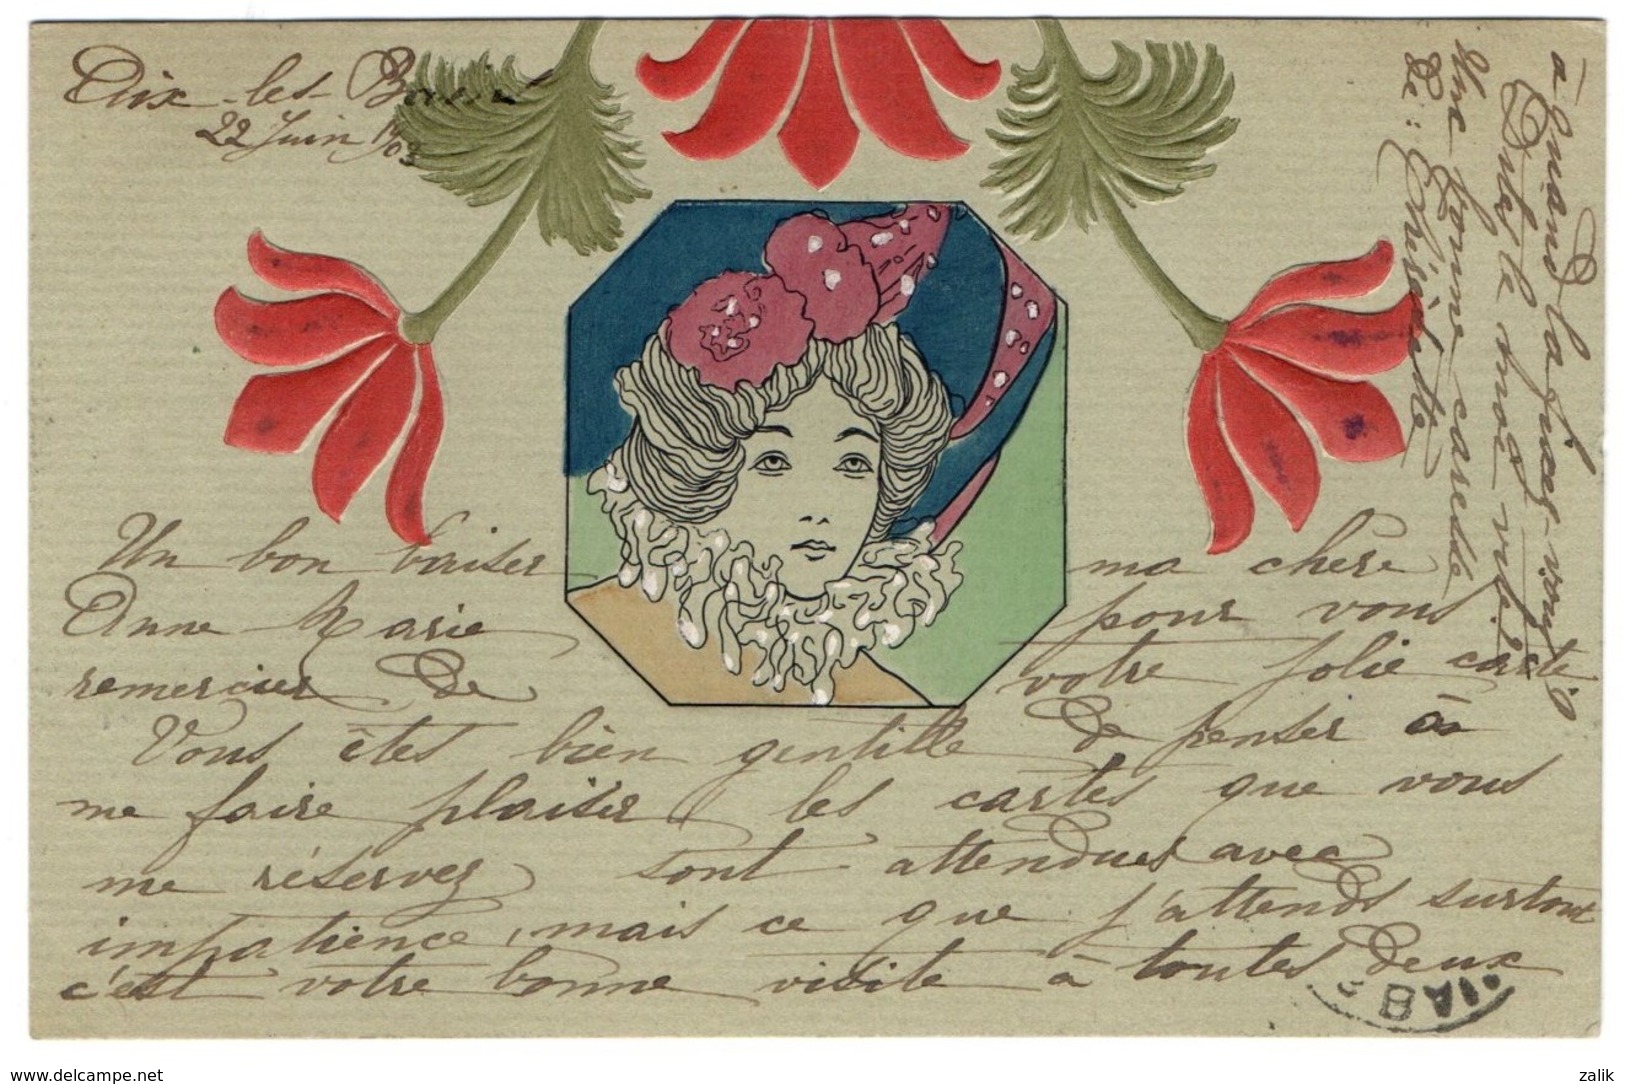 Aix-les-Bains
22 Juin 1903
Un bon baiser ma chere
Anne Marie pour vous
remercier de votre jolie carte
Vous êtes bien gentille de penser à
me faire plaisir les cartes que vous
me réservez sont attendues avec
impatience, mais ce que j'attends surtout
c'est votre bonne visite à toutes deux
à quand la fixez-vous?
Une bonne caresse
De:
delcampe.net
zalik